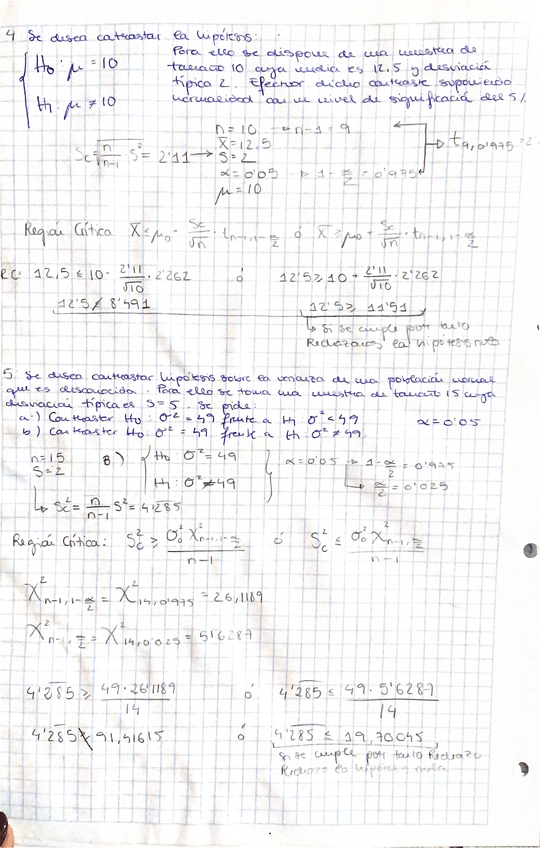 4 Se desea contrastar la hipótesis:
H₀: μ = 10
H₁: μ ≠ 10
Para ello se dispone de una muestra de
tamaño 10 cuya media es 12.5 y desviación
típica 2. Efectuar dicho contraste suponiendo
normalidad con un nivel de significació del 5%.
n = 10 → n-1 = 9
x̄ = 12,5
S = 2
α = 0'05 → 1 - α/2 = 0'975
μ = 10
t₉,₀'₉₇₅ = 2
Sc = √(n/(n-1) · S²) = 2'11 →
Región Crítica x̄ ≤ μ₀ - Sc/√n · tₙ₋₁,₁₋α/₂ ó x̄ ≥ μ₀ + Sc/√n · tₙ₋₁,₁₋α/₂
RC: 12,5 ≤ 10 - 2'11/√10 · 2'262 ó 12'5 ≥ 10 + 2'11/√10 · 2'262
12'5 ≰ 8'491 12'5 ≥ 11'51
↳ Si se cumple por tanto
Rechazamos la hipótesis nula
5 Se desea contrastar hipótesis sobre la varianza de una población normal
que es desconocida. Para ello se toma una muestra de tamaño 15 cuya
desviación típica es S = 5. Se pide:
a.) Contraster H₀: σ² = 49 frente a H₁ σ² < 49 α = 0'05
b) Contraster H₀: σ² = 49 frente a H₁: σ² ≠ 49.
n = 15
S = 2
B) H₀: σ² = 49
H₁: σ² ≠ 49
α = 0'05 → 1 - α/2 = 0'975
→ α/2 = 0'025
↳ Sc² = n/(n-1) S² = 4'285
Región Crítica: Sc² ≥ σ₀² χ²ₙ₋₁,₁₋α/₂ / (n-1) ó Sc² ≤ σ₀² χ²ₙ₋₁,α/₂ / (n-1)
χ²ₙ₋₁,₁₋α/₂ = χ²₁₄,₀'₉₇₅ = 26,1189
χ²ₙ₋₁,α/₂ = χ²₁₄,₀'₀₂₅ = 5'6287
4'285 ≥ 49 · 26'1189 / 14 ó 4'285 ≤ 49 · 5'6287 / 14
4'285 ≱ 91,41615 ó 4'285 ≤ 19,70045
Si se cumple por tanto Rechazo
Rechazo la hipótesis nula